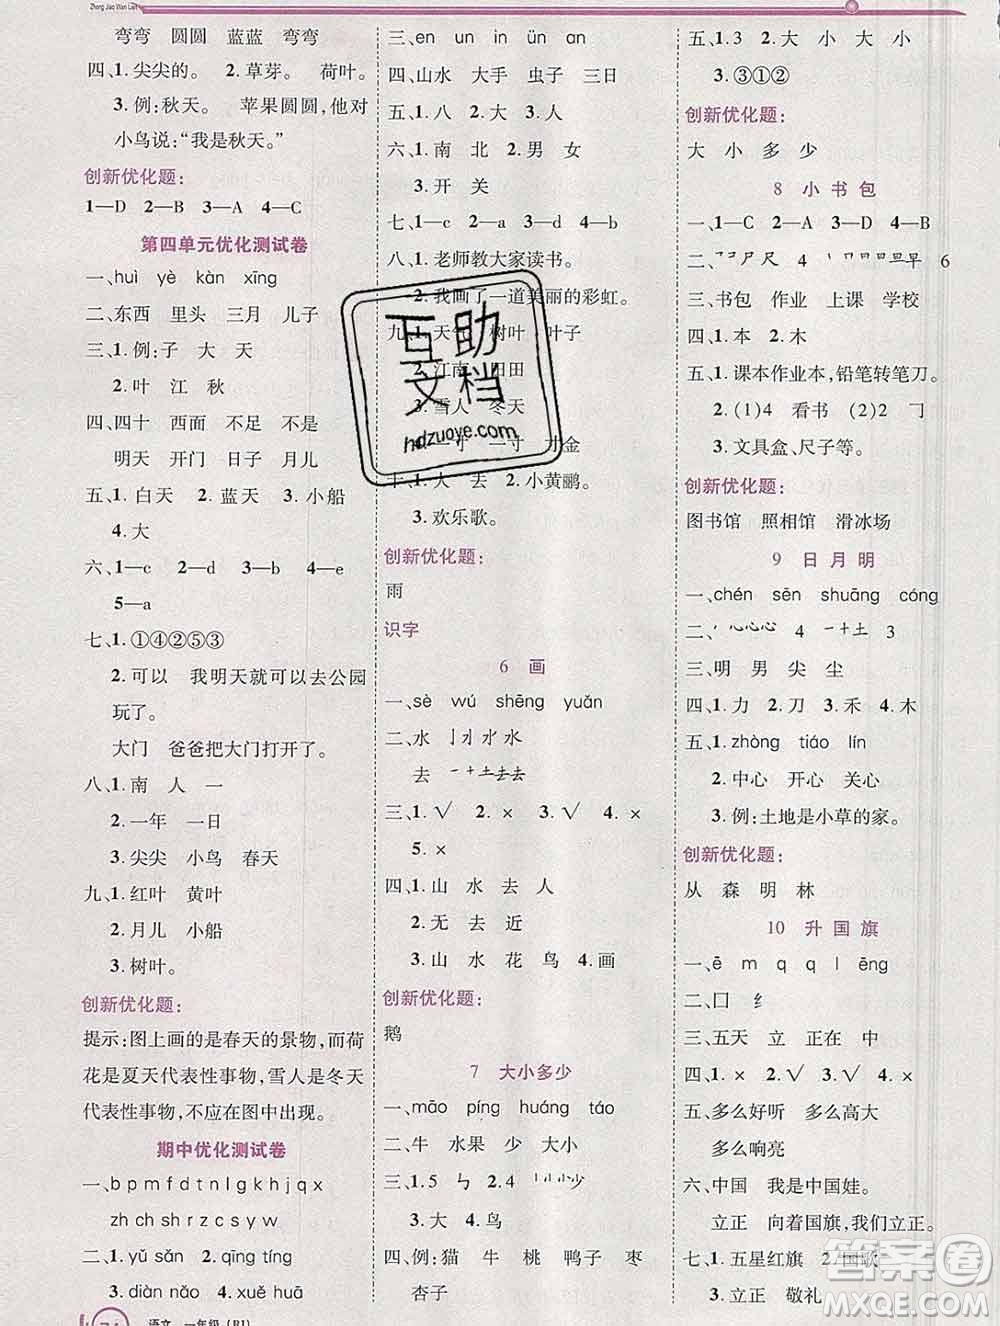 Zhong Jiao Wan Lian
弯弯 圆圆 蓝蓝 弯弯
四、1.尖尖的。 2.草芽。 荷叶。
3.例:秋天。 苹果圆圆,他对
小鸟说:“我是秋天。”
创新优化题:
1—D 2—B 3—A 4—C
第四单元优化测试卷
一、huì yè kàn xīng
二、东西 里头 三月 儿子
三、1.例:子 大 天
2.叶 江 秋
四、四十 西面 不足 不是
明天 开门 日子 月儿
五、1.白天 2.蓝天 3.小船
4.大
六、1—c 2—d 3—b 4—e
5—a
七、1.①④②⑤③
2.可以 我明天就可以去公园
玩了。
大门 爸爸把大门打开了。
八、1.南 人 一
2.一年 一日
3.尖尖 小鸟 春天
九、1.红叶 黄叶
2.月儿 小船
3.树叶。
创新优化题:
提示:图上画的是春天的景物,而荷
花是夏天代表性事物,雪人是冬天
代表性事物,不应在图中出现。
期中优化测试卷
一、b p m f d t n l g k h j q x
zh ch sh r z c s y w
二、1.yǔ sǎn 2.qīng tíng
3.diàn nǎo 4.xuě huā
语文 一年级 (RJ)
三、en un in ün an
四、山水 大手 虫子 三日
五、1.八 2.大 3.人
六、1.南 北 2.男 女
3.开 关
七、1—c 2—d 3—b 4—a
八、1.老师教大家读书。
2.我画了一道美丽的彩虹。
九、1.天气 树叶 叶子
2.江南 田田
3.雪人 冬天
一寸 金
十、1.大 去 2.小黄鹂。
3.欢乐歌。
创新优化题:
雨
识字
6 画
一、sè wú shēng yuǎn
二、水 亅 水 水
去 一 十 土 去 去
三、1.√ 2.× 3.√ 4.×
5.×
四、1.山 水 去 人
2.无 去 近
3.山 水 花 鸟 4.画
创新优化题:
鹅
7 大小多少
一、māo píng huáng táo
二、牛 水果 少 大小
三、1.5 ㄣ 2.4 小 少
3.大 4.鸟
四、例:猫 牛 桃 鸭子 枣
杏子
五、1.3 2.大 小 大 小
3.③①②
创新优化题:
大 小 多 少
8 小书包
一、1—C 2—A 3—D 4—B
二、尸 尺 4 早 6
三、书包 作业 上课 学校
四、1.本 2.木
五、1.课本作业本,铅笔转笔刀。
2.(1)4 看书 (2)2 丁
3.文具盒、尺子等。
创新优化题:
图书馆 照相馆 滑冰场
9 日月明
一、chén sēn shuāng cóng
二、心心心 4 一 十 土 3
三、明 男 尖 尘
四、1.力 2.刀 3.禾 4.木
五、1.zhòng tiáo lín
2.中心 开心 关心
3.例:土地是小草的家。
创新优化题:
从 森 明 林
10 升国旗
一、ē m q q l ēng
二、囗 纟
三、五天 立 正在 中
四、1.× 2.√ 3.× 4.√
五、多么好听 多么高大
多么响亮
六、中国 我是中国娃。
立正 向着国旗,我们立正。
七、1.五星红旗 2.国歌
3.立正 敬礼
互助文档
hdzuoye.com
答案圈
MXQE.COM